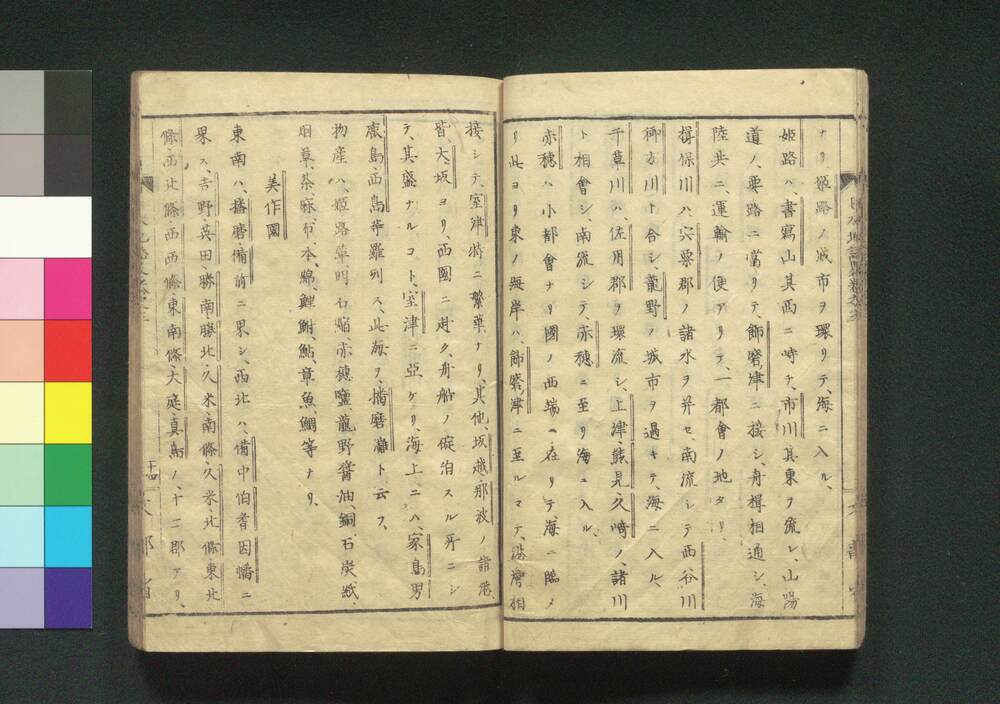 ナリ、姫路ノ城市ヲ環リテ、海ニ入ル、
姫路ハ、書寫山其西ニ峙チ、市川其東ヲ流レ、山陽
道ノ、要路ニ當リテ、飾磨津ニ接シ、舟楫相通シ、海
陸共ニ、運輸ノ便アリテ、一都會ノ地タリ、
揖保川ハ、宍粟郡ノ諸水ヲ并セ、南流シテ西谷川
御方川ト合シ、龍野ノ城市ヲ過キテ、海ニ入ル、
千草川ハ、佐用郡ヲ環流シ、上津、熊見、久崎ノ、諸川
ト相會シ、南流シテ、赤穗ニ至リ海ニ入ル、
赤穗ハ小都會ナリ國ノ西端ニ在リテ、海ニ臨メ
リ此ヨリ東ノ海岸ハ、飾磨津ニ至ルマテ、港灣相
接シテ、室津特ニ繁華ナリ、其他、坂越、那波ノ諸港、
皆、大坂ヨリ、西國ニ赴ク、舟船ノ碇泊スル所ニシ
テ、其盛ナルコト、室津ニ亞ケリ、海上ニハ、家島男
鹿島西島等羅列ス、此海ヲ、播磨灘ト云フ、
物産ハ、姫路革明石縮赤穗鹽、龍野醤油、銅、石炭紙、
烟草、茶、麻、布、木綿、鯉鮒、鮎、章魚、鯛等ナリ、
美作國
東南ハ、播磨、備前ニ界シ、西北ハ、備中伯耆因幡ニ
界ス、吉野英田、勝南、勝北、久米、南條、久米、北條、東北
條、西北條、西西條、東南條、大庭、真島ノ、十二郡アリ、